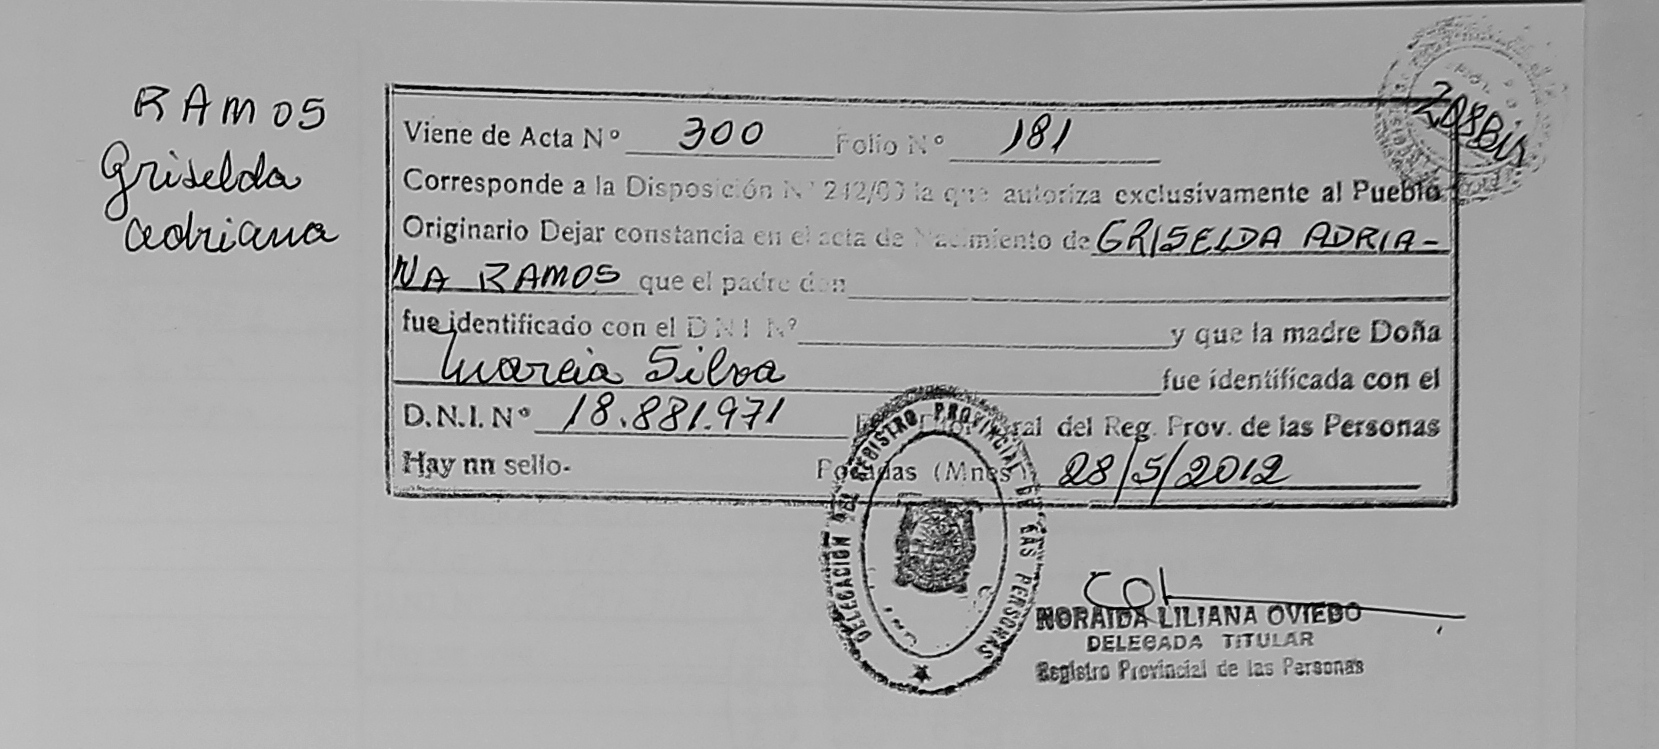 RAMOS
Griselda
Adriana
208 Bis
Viene de Acta Nº 300 Folio Nº 181
Corresponde a la Disposición Nº 242/00 la que autoriza exclusivamente al Pueblo
Originario Dejar constancia en el acta de Nacimiento de GRISELDA ADRIA-
NA RAMOS que el padre don
fue identificado con el D N I Nº y que la madre Doña
Marcia Silva fue identificada con el
D.N.I. Nº 18.881.971 ral del Reg. Prov. de las Personas
Hay nn sello- Posadas (Mnes 28/5/2012
DELEGACION DEL REGISTRO PROVINCIAL DE LAS PERSONAS
NORAIDA LILIANA OVIEDO
DELEGADA TITULAR
Registro Provincial de las Personas